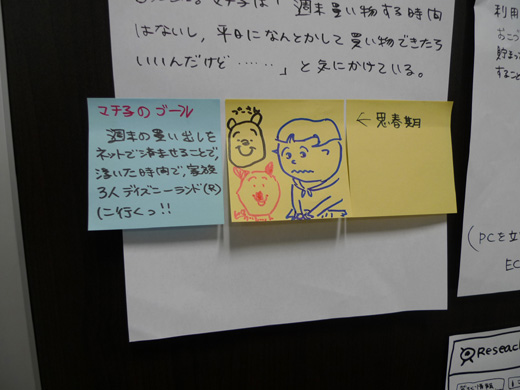 マチ子は「週末買い物する時間
はないし、平日になんとかして買い物できたら
いいんだけど……」と気にかけている。
マチ子のゴール
週末の買い出しを
ネットで済ませることで、
浮いた時間で、家族
3人ディズニーランド(R)
に行くっ!!
プーさん
←思春期
利用
おこづ
貯まっ
すること
(PCを立
EC
Reseach